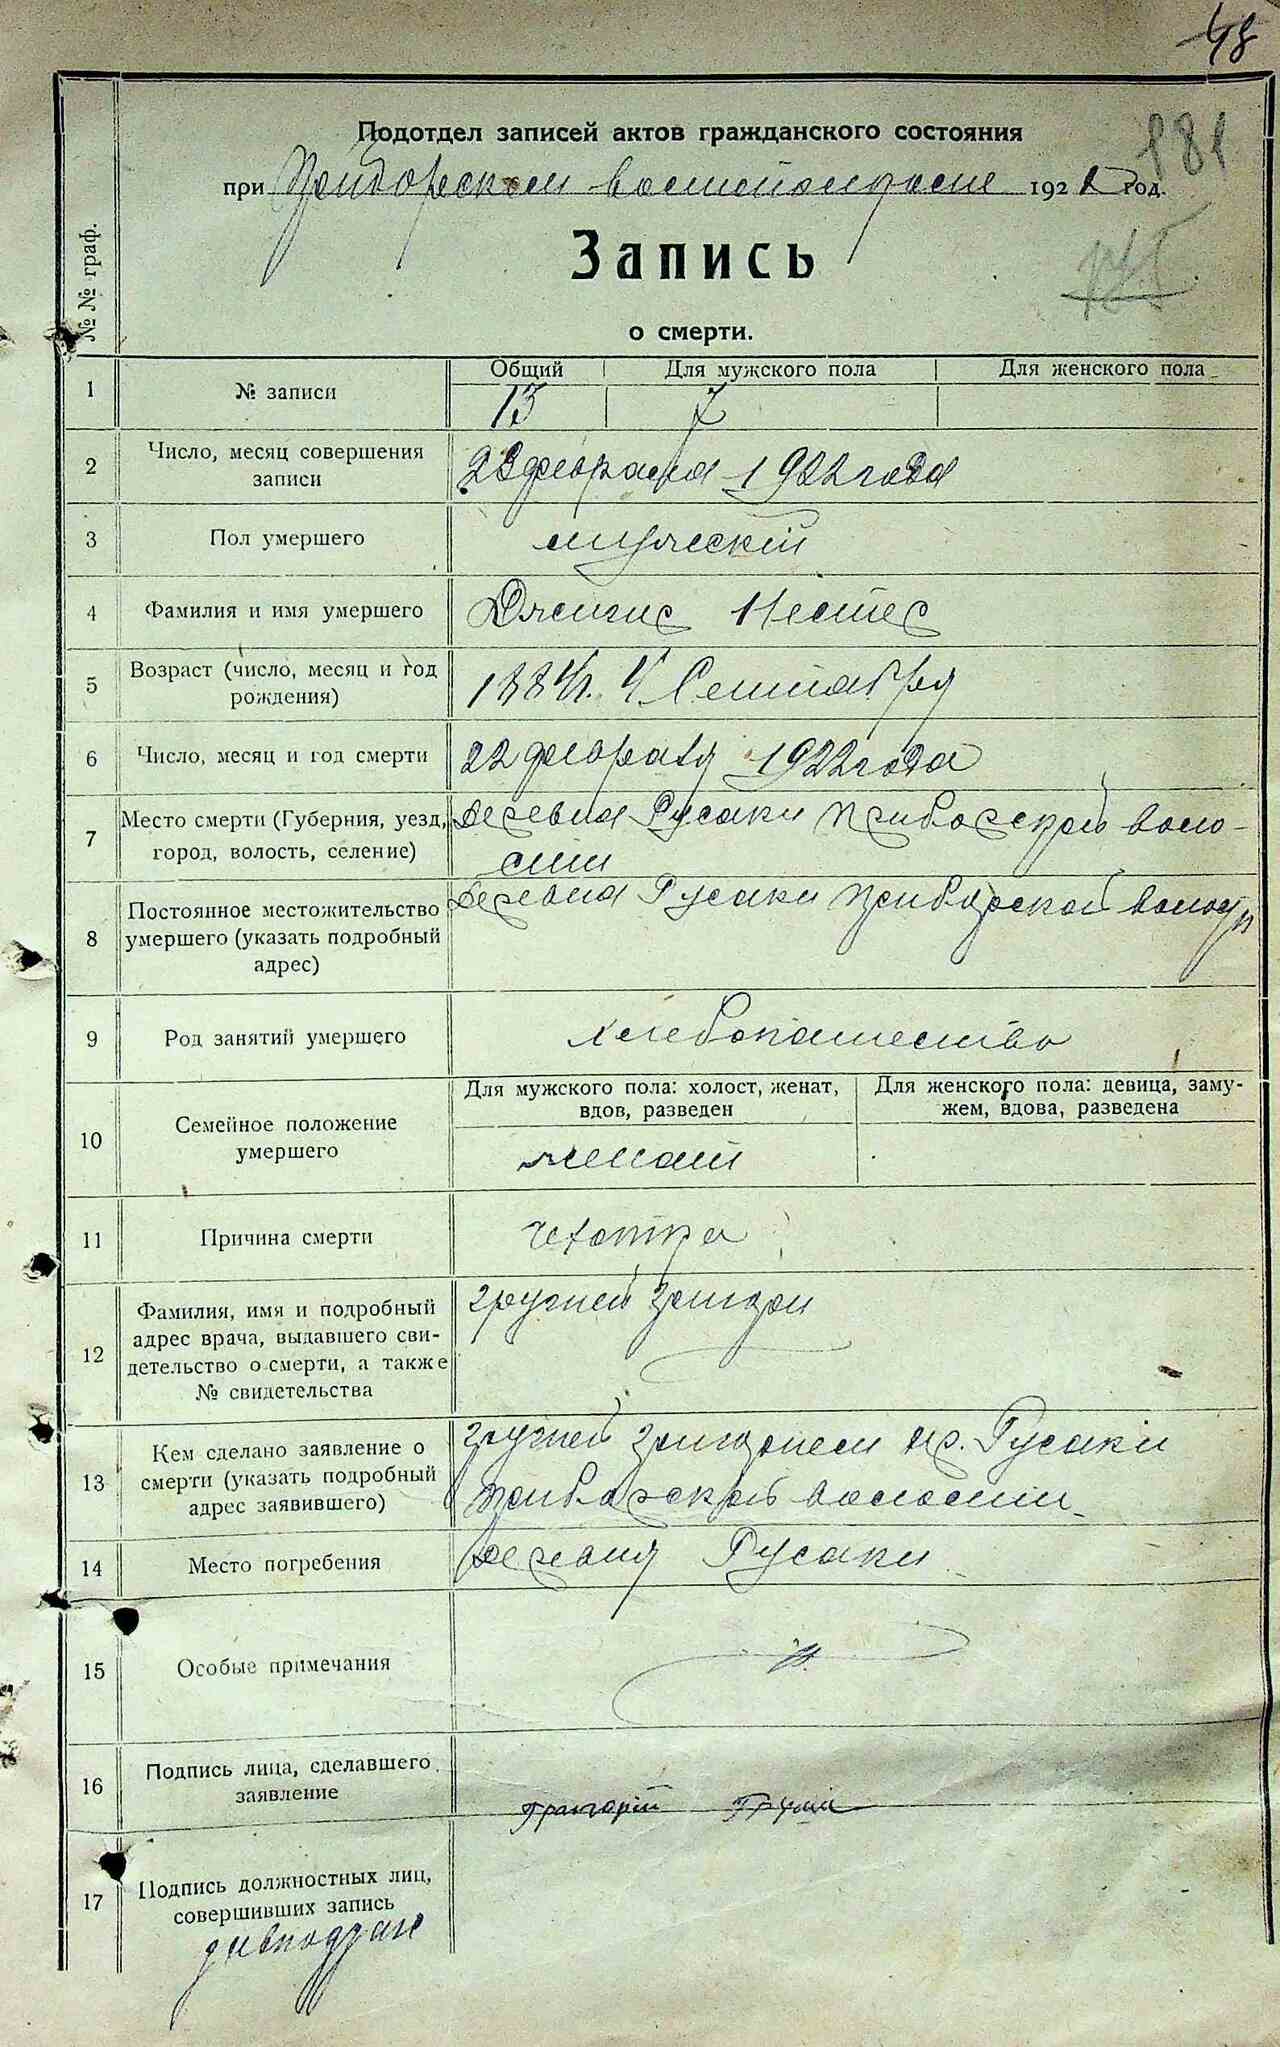 48
181
Подотдел записей актов гражданского состояния
при волисполкоме 1922 год.
Запись
о смерти.
№ № граф.
Общий Для мужского пола Для женского пола
1 № записи 13 7
2 Число, месяц совершения записи
23 февраля 1922 года
3 Пол умершего мужской
4 Фамилия и имя умершего
5 Возраст (число, месяц и год рождения)
1884 г. 4 Сентября
6 Число, месяц и год смерти 22 февраля 1922 года
7 Место смерти (Губерния, уезд, город, волость, селение)
деревня Русаки Приборской воло-
сти
8 Постоянное местожительство умершего (указать подробный адрес)
деревня Русаки Приборской волости
9 Род занятий умершего хлебопашество
10 Семейное положение умершего
Для мужского пола: холост, женат, вдов, разведен
Для женского пола: девица, замужем, вдова, разведена
женат
11 Причина смерти чехотка
12 Фамилия, имя и подробный адрес врача, выдавшего свидетельство о смерти, а также № свидетельства
13 Кем сделано заявление о смерти (указать подробный адрес заявившего)
Русаки
Приборской волости
14 Место погребения деревня Русаки
15 Особые примечания
16 Подпись лица, сделавшего заявление
17 Подпись должностных лиц, совершивших запись